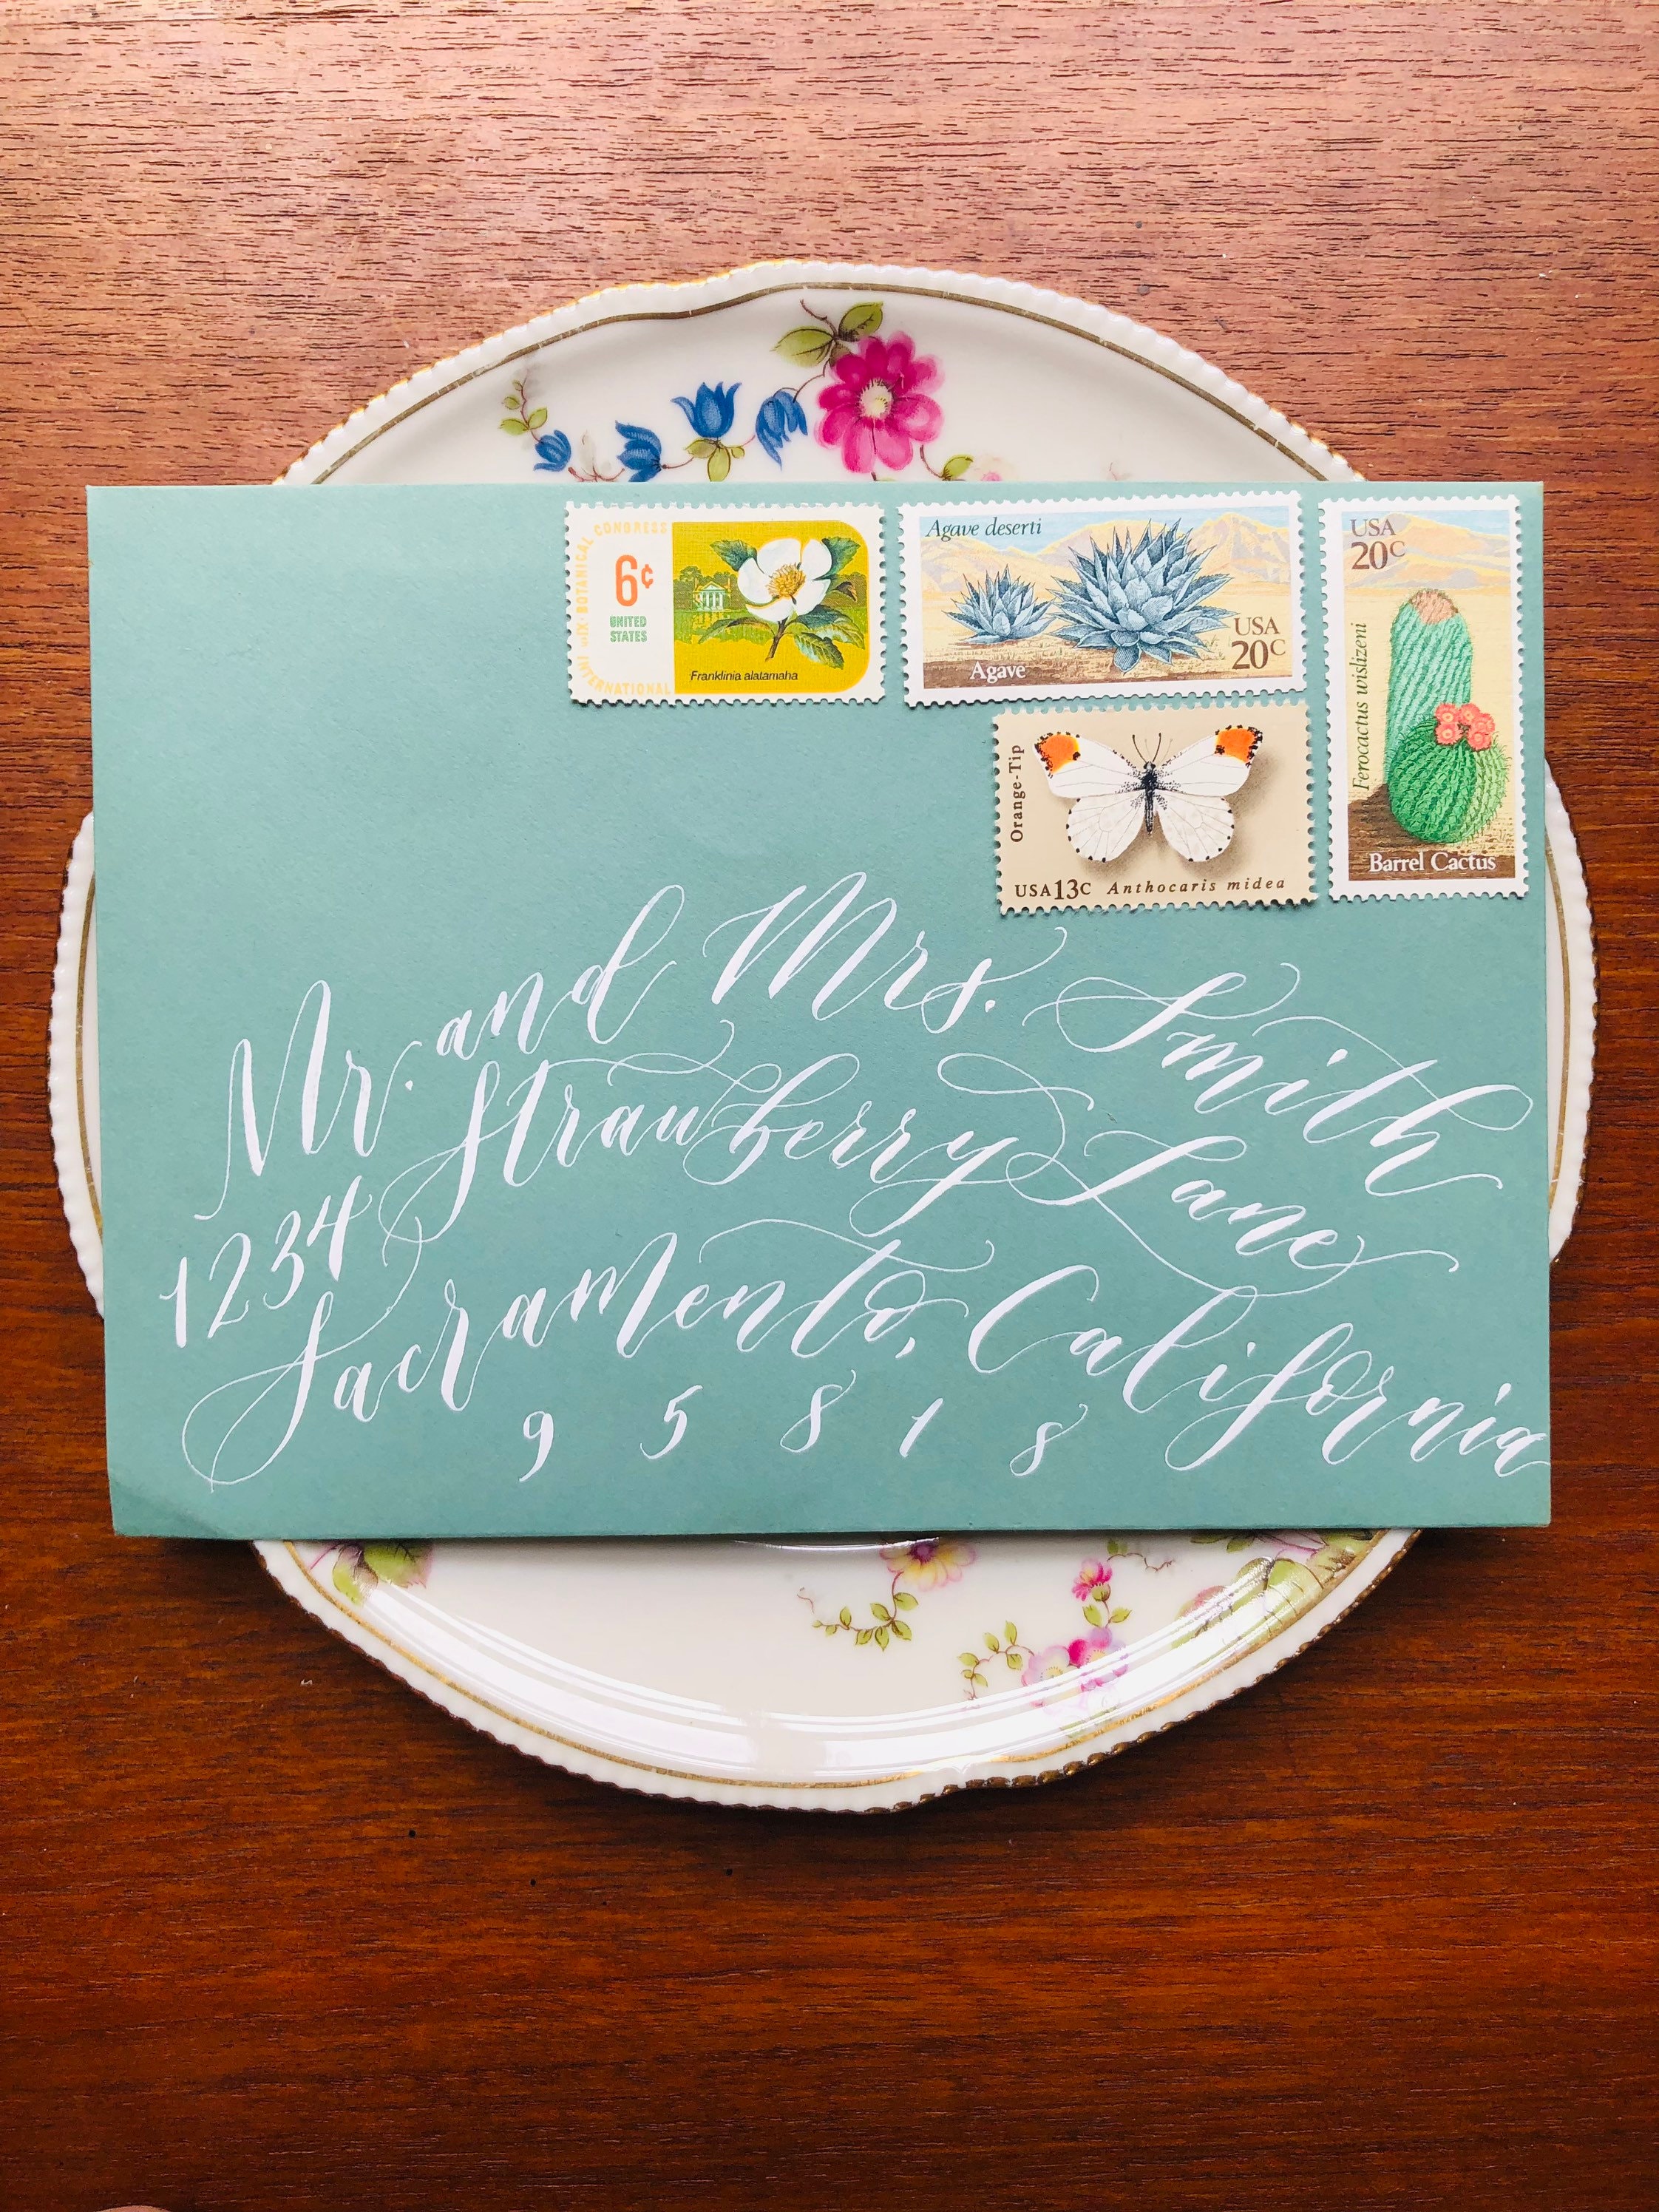 INTERNATIONAL BOTANICAL CONGRESS
6¢
UNITED
STATES
Franklinia alatamaha
Agave deserti
Agave
USA
20c
USA
20c
Ferocactus wislizeni
Barrel Cactus
Orange-Tip
USA 13c Anthocaris midea
Mr. and Mrs. Smith
1234 Strawberry Lane
Sacramento, California
95818